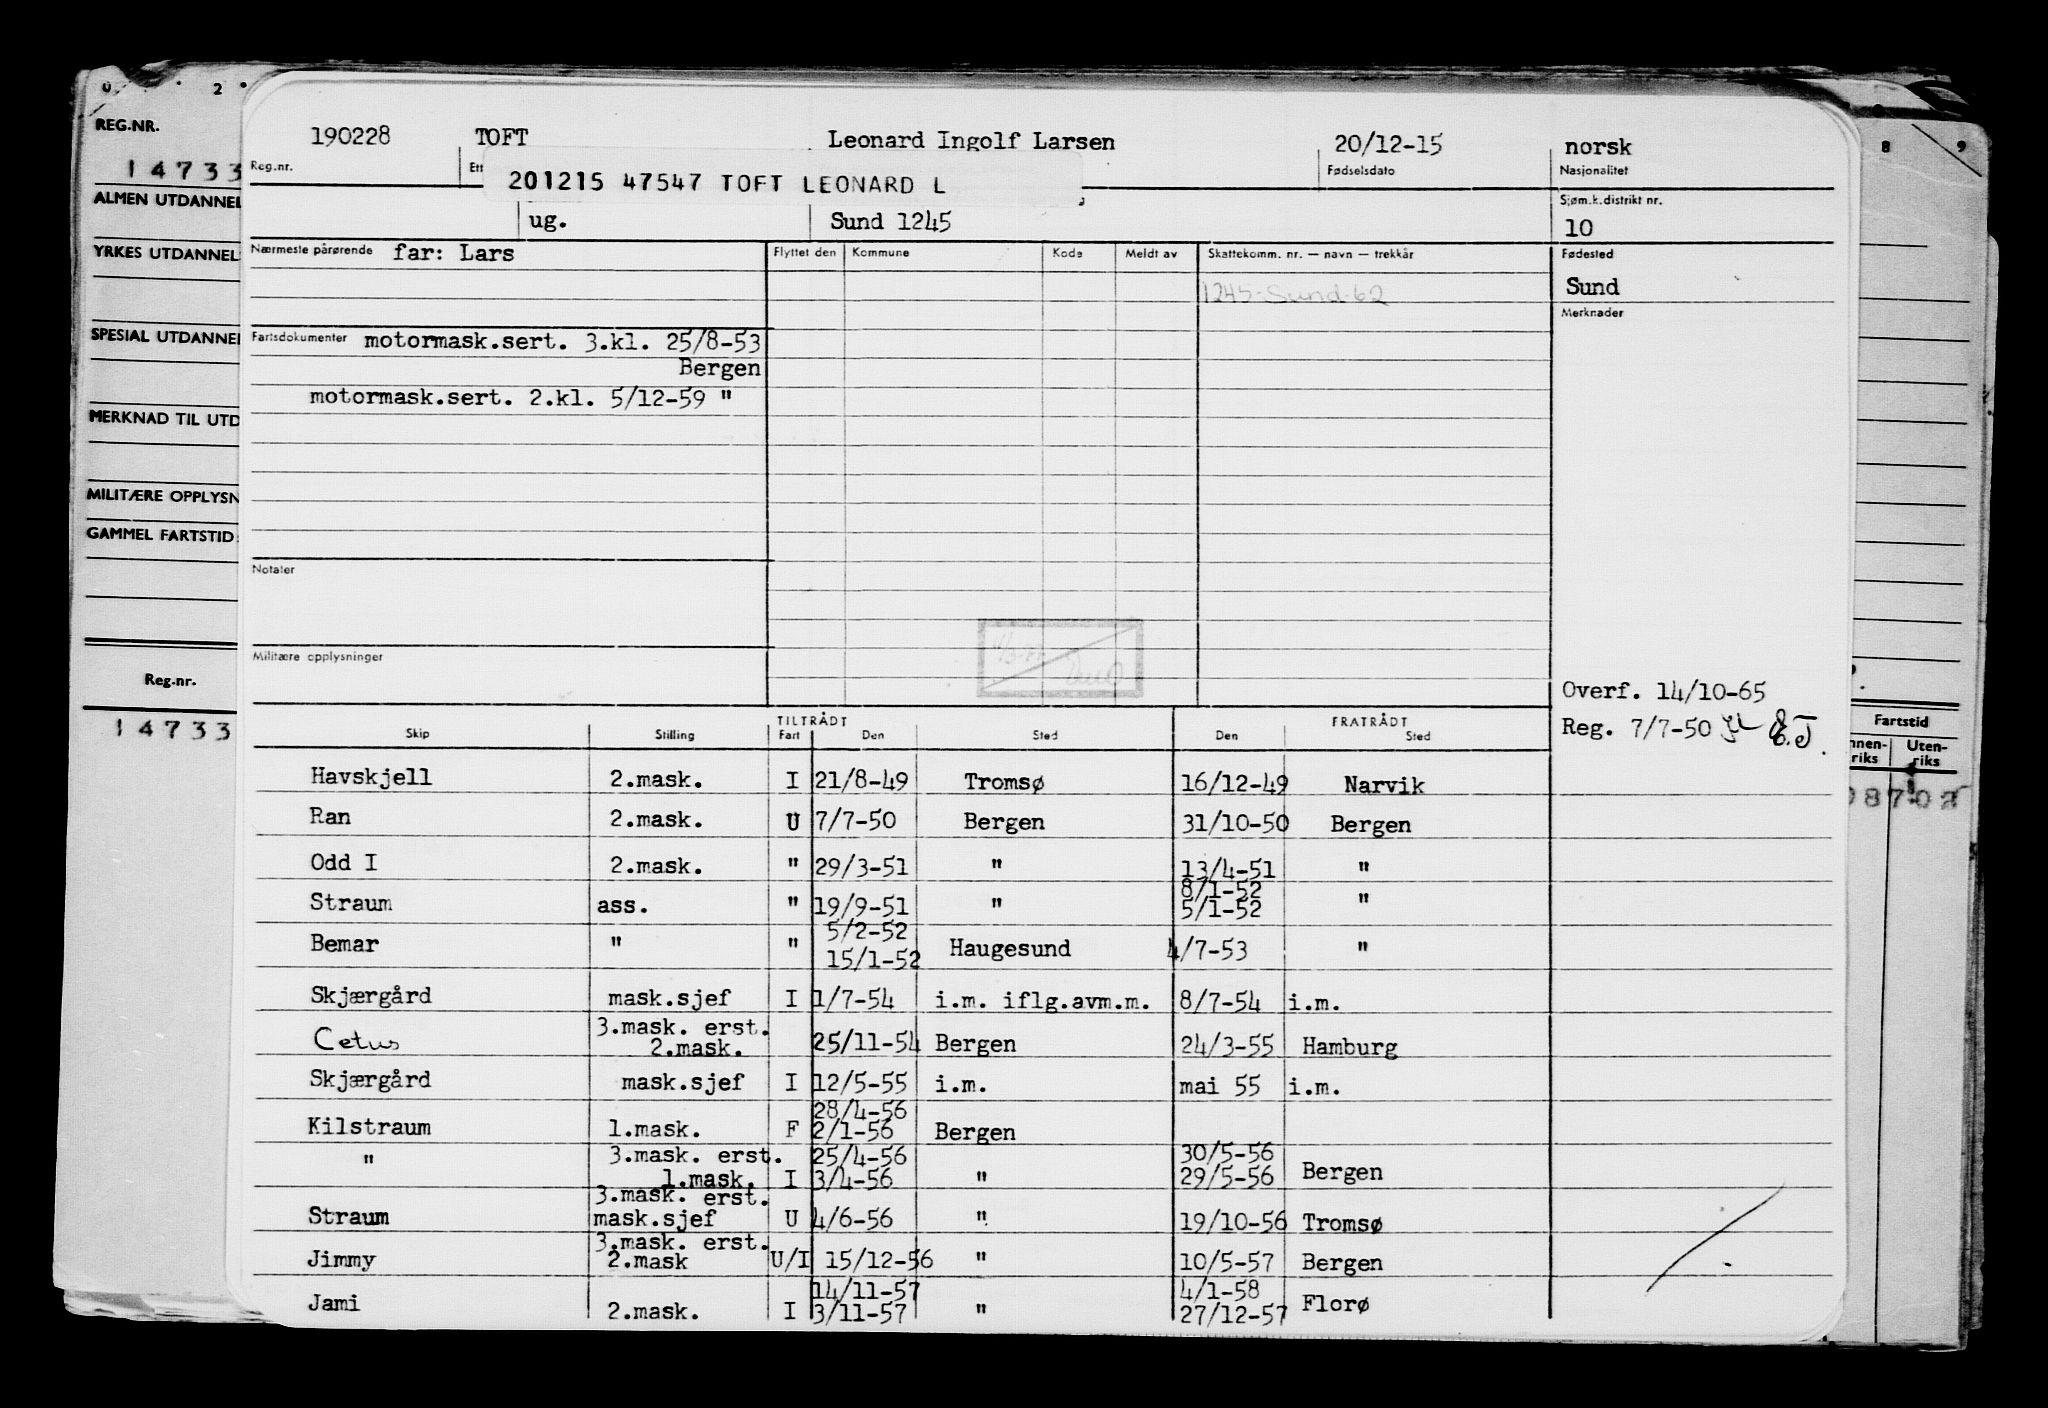 190228 TOFT Leonard Ingolf Larsen 20/12-15 norsk
Reg.nr. Ett Fødselsdato Nasjonalitet
201215 47547 TOFT LEONARD L
ug. Sund 1245
Sjøm.k.distrikt nr.
10
Nærmeste pårørende far: Lars
Flyttet den Kommune Kode Meldt av Skattekomm. nr. — navn — trekkår Fødested
1245-Sund-62
Sund
Merknader
Fartsdokumenter motormask.sert. 3.kl. 25/8-53
Bergen
motormask.sert. 2.kl. 5/12-59 "
Notater
Militære opplysninger
Overf. 14/10-65
Reg. 7/7-50 E.J.
TILTRÅDT FRATRÅDT
Skip Stilling Fart Den Sted Den Sted
Havskjell 2.mask. I 21/8-49 Tromsø 16/12-49 Narvik
Ran 2.mask. U 7/7-50 Bergen 31/10-50 Bergen
Odd I 2.mask. " 29/3-51 " 13/4-51 "
8/1-52
Straum ass. " 19/9-51 " 5/1-52 "
5/2-52
Bemar " " 15/1-52 Haugesund 4/7-53 "
Skjærgård mask.sjef I 1/7-54 i.m. iflg.avm.m. 8/7-54 i.m.
3.mask. erst.
Cetus 2.mask. 25/11-54 Bergen 24/3-55 Hamburg
Skjærgård mask.sjef I 12/5-55 i.m. mai 55 i.m.
28/4-56
Kilstraum 1.mask. F 2/1-56 Bergen
" 3.mask. erst. 25/4-56 30/5-56
1.mask. I 3/4-56 " 29/5-56 Bergen
3.mask. erst.
Straum mask.sjef U 4/6-56 " 19/10-56 Tromsø
3.mask. erst.
Jimmy 2.mask U/I 15/12-56 " 10/5-57 Bergen
14/11-57 4/1-58
Jami 2.mask. I 3/11-57 " 27/12-57 Florø
0 2
REG.NR.
14733
ALMEN UTDANNEL
YRKES UTDANNEL
SPESIAL UTDANNEL
MERKNAD TIL UTD
MILITÆRE OPPLYSN
GAMMEL FARTSTID
Reg.nr.
14733
8 9
Fartstid
nnen-
riks
Uten-
riks